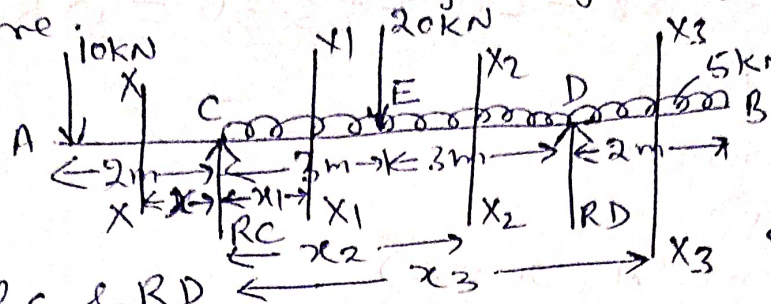 10KN X X1 20KN X2 X3
C E D 5K
A B
2m 3m 3m 2m
X x x1 X1 X2 RD X3
RC x2
x3
& RD